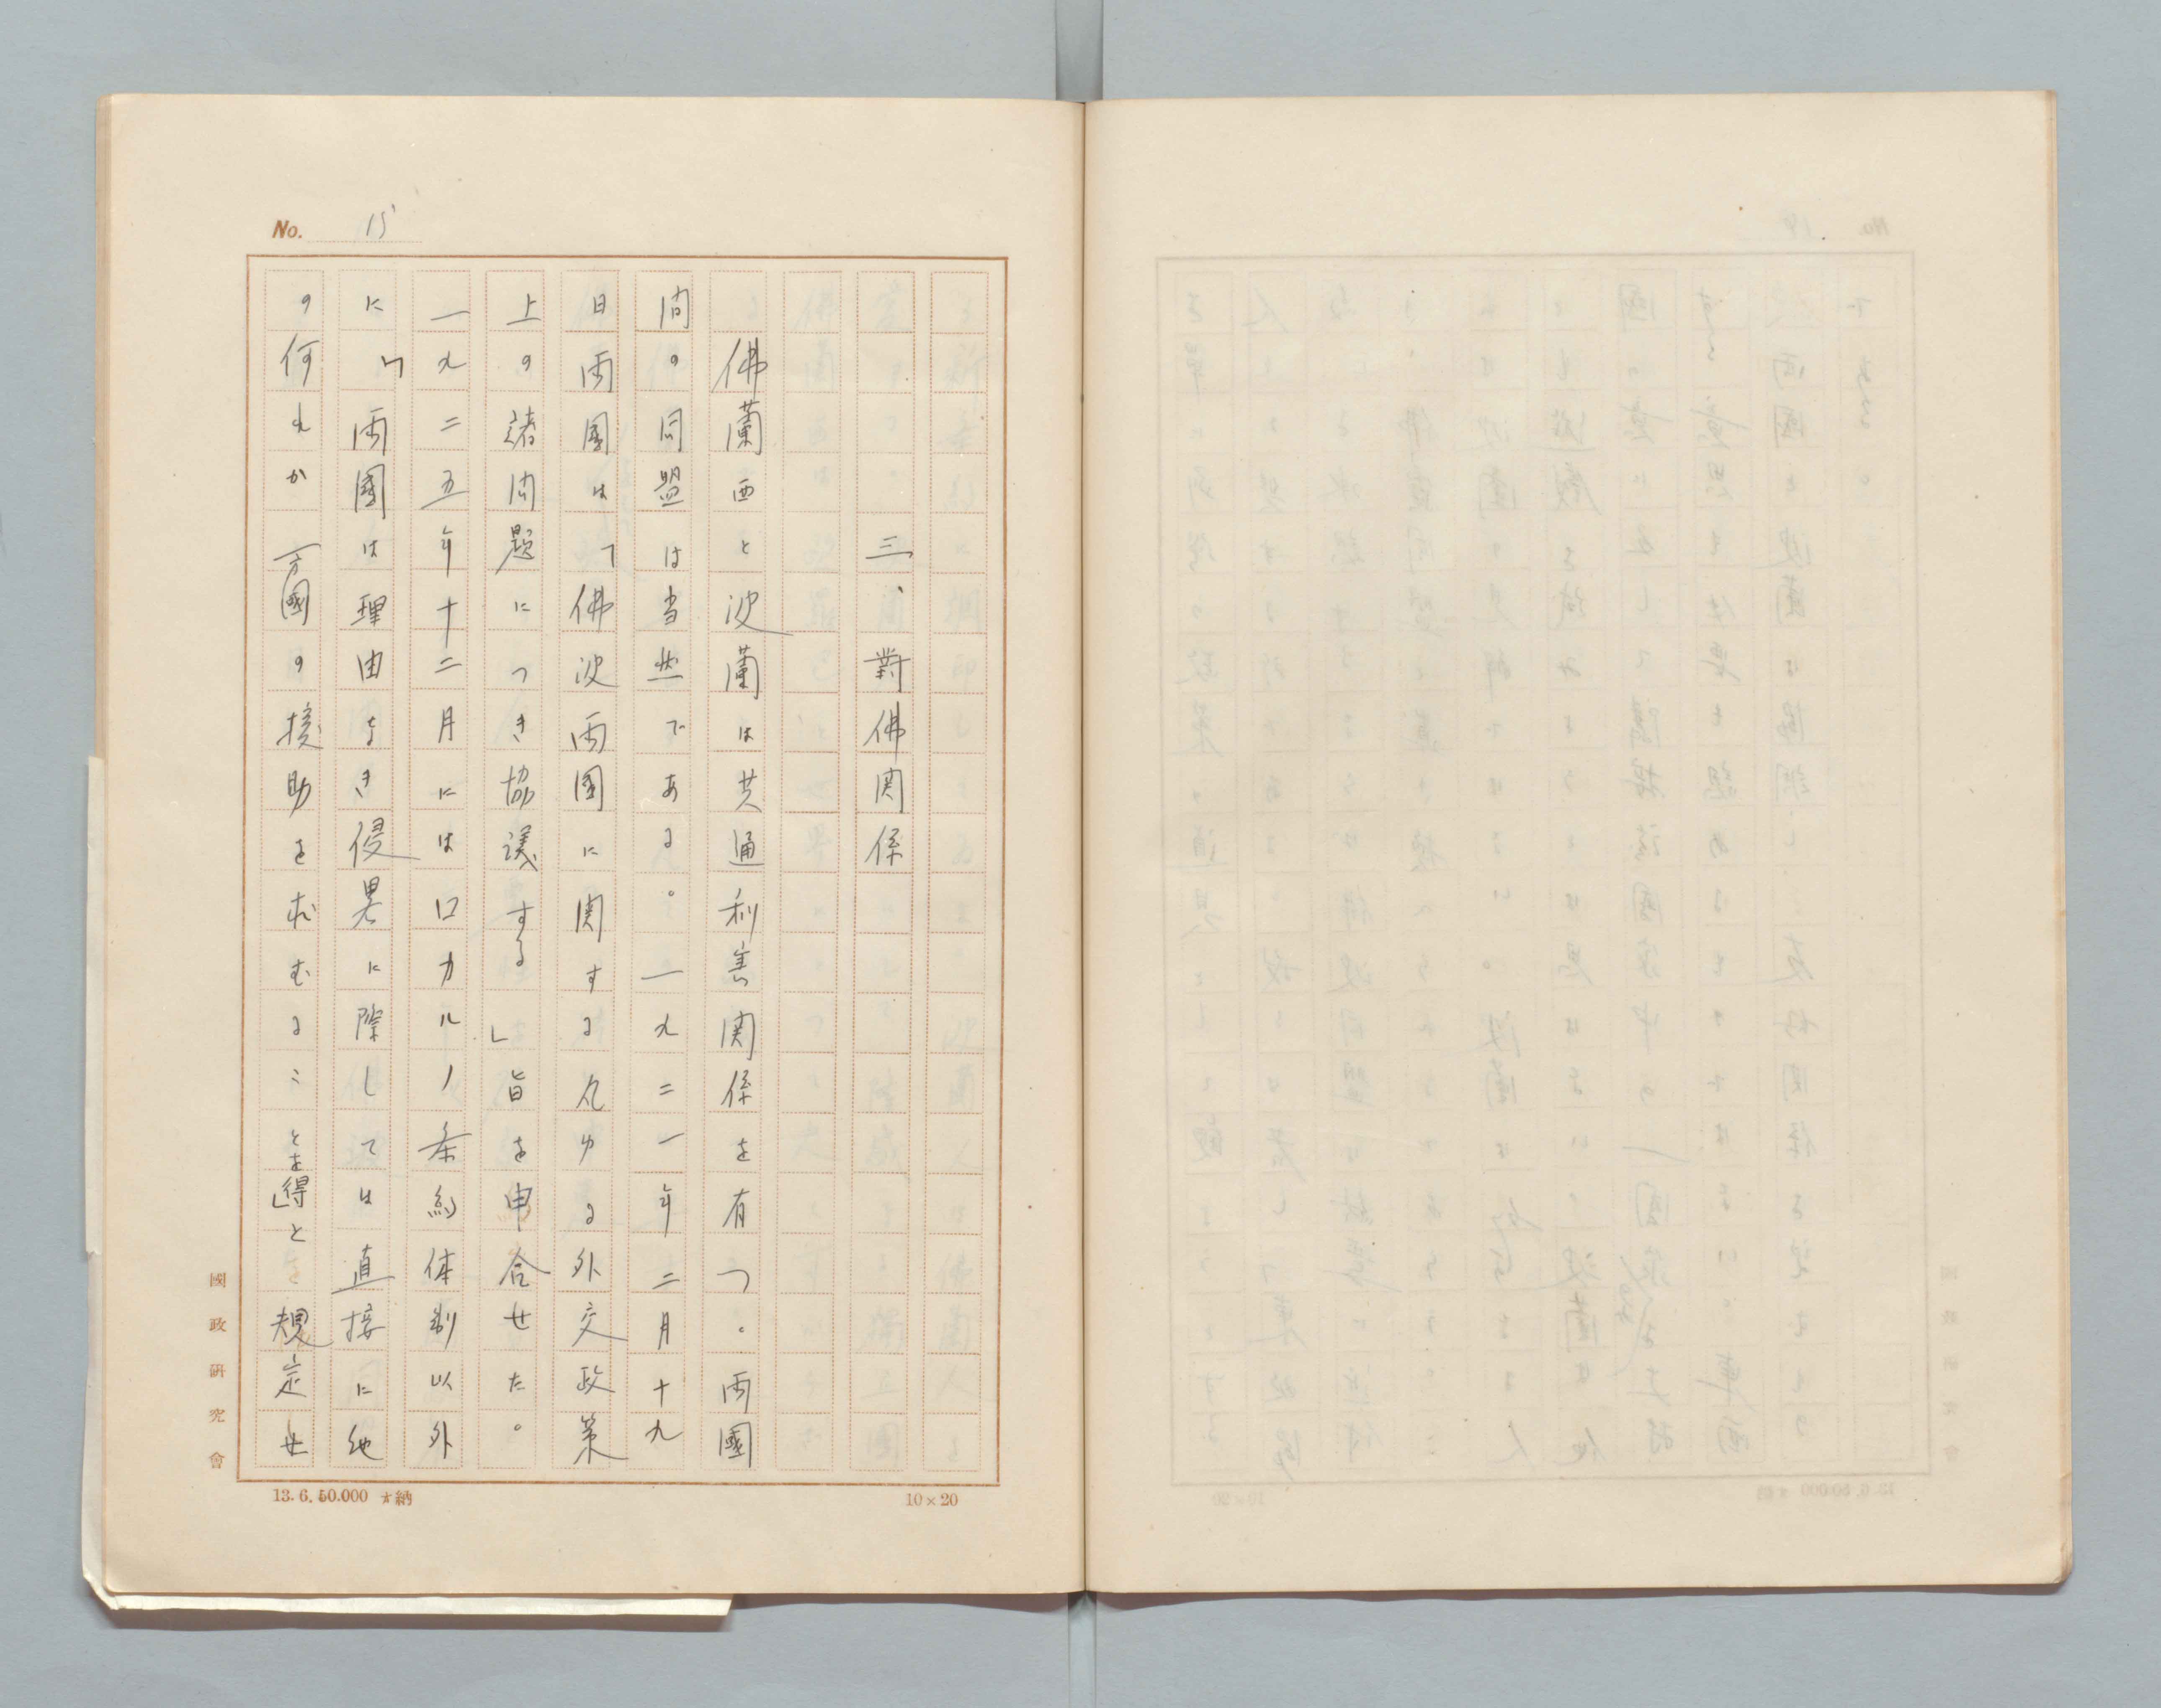 No. 15
三、對佛関係
佛蘭西と波蘭は共通利害関係を有つ。両國
間の同盟は当然である。一九二一年二月十九
日両國は「佛波両國に関する凡ゆる外交政策
上の諸問題につき協議する」旨を申合せた。
一九二五年十二月にはロカルノ条約体制以外
に「両國は理由なき侵畧に際しては直接に他
の何れか一方國の援助を求むることを得」と規定せ
國政研究會
13. 6. 50.000 才納
10×20